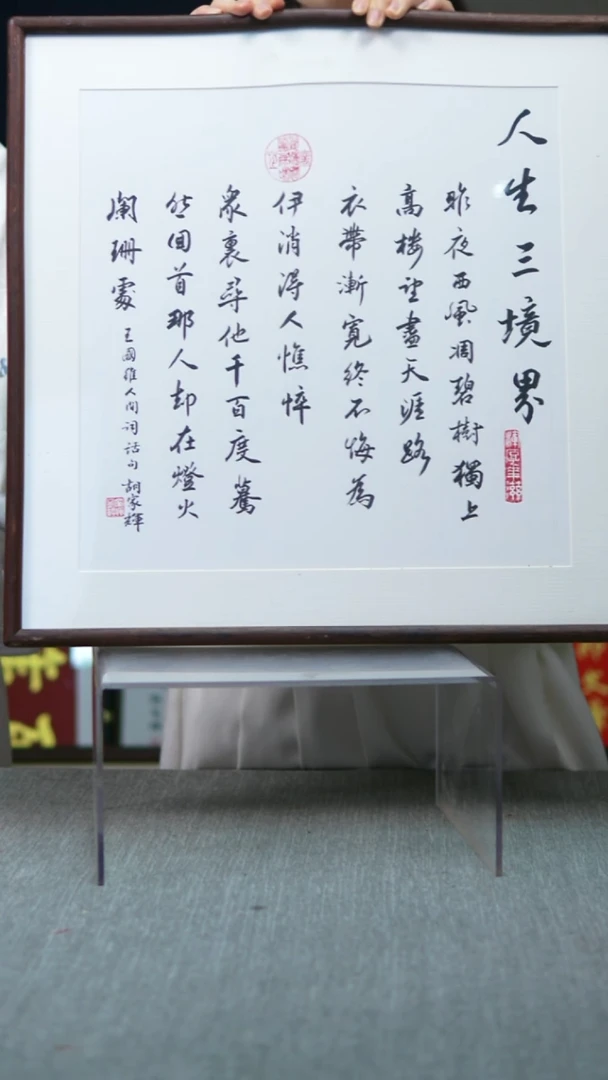 人生三境界
昨夜西風凋碧樹獨上
高樓望盡天涯路
衣帶漸寬終不悔為
伊消得人憔悴
眾裏尋他千百度驀
然回首那人却在燈火
闌珊處
王國維人間詞話句 胡家輝